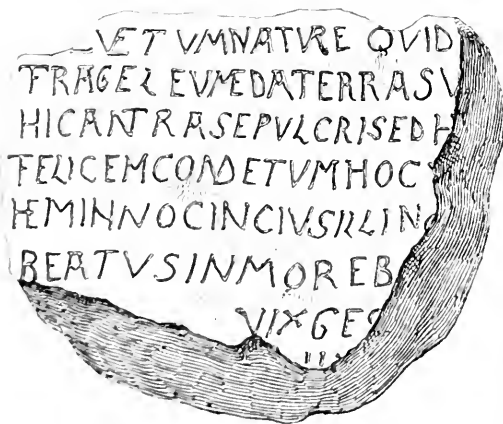 VETVMNATVRE QVID
FRAGELEVMEDATERRASV
HICANTRASEPVLCRISEDH
FELICEMCONDETVMHOC
HEMINNOCINCIVSILLINC
BEATVSINMOREB
VIXGES